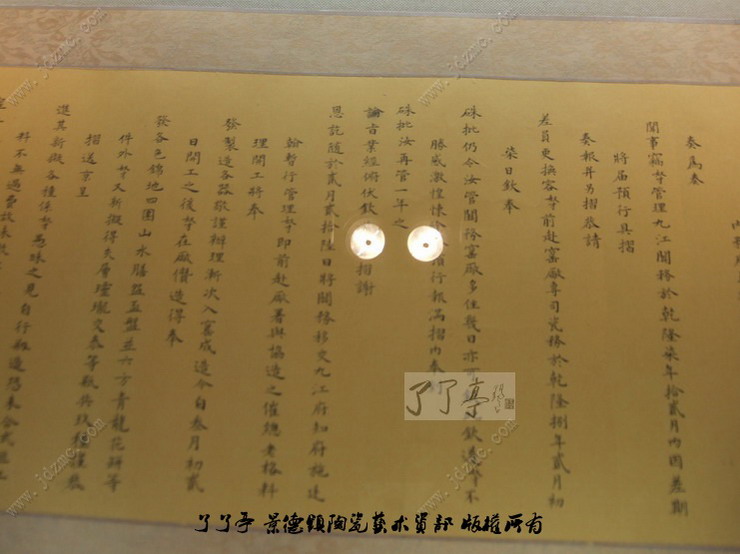 奏爲奏
聞事竊奴才管理九江關務於乾隆柒年拾貳月內因差期
將屆預行具摺
奏報并另摺恭請
差員更換容奴才前赴窰廠專司瓷務於乾隆捌年貳月初
柒日欽奉
硃批仍令汝管關務窰廠多住幾日亦可 欽遵奴才不
勝感激惶悚 預行報滿摺內奉到
硃批汝再管一年之
諭旨業經俯伏欽 摺謝
恩訖隨於貳月貳拾陸日將關務移交九江府知府施廷
翰暫行管理奴才即前赴廠署與協造之催總老格料
理開工將奉
發製造各器敬謹辦理漸次入窰成造今自叁月初貳
日開工之後奴才在廠儹造得奉
發各色錦地四團山水膳盌盃盤並六方青龍花瓶等
件外奴才又新擬得夾層玲瓏交泰等瓶共玖種謹恭
摺送京呈
進其新擬各種係奴才愚昧之見自行擬造恐未合式且工
料不無過費故未敢
了了亭
了了亭 景德鎮陶瓷藝术資訊 版權所有
www.jdzmc.com
www.jdzmc.com
www.jdzmc.com
www.jdzmc.com